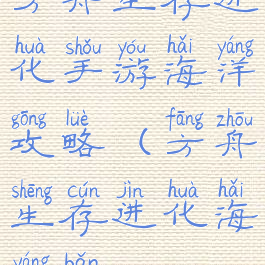 方舟生存进
huà shǒu yóu hǎi yáng
化手游海洋
gōng lüè fāng zhōu
攻略（方舟
shēng cún jìn huà hǎi
生存进化海
yáng bǎn